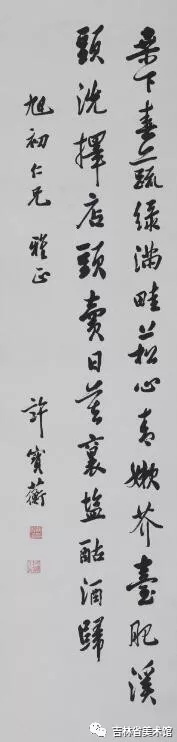 桑下春蔬绿满畦菘心青嫩芥薹肥溪
頭洗擇店頭賣日莫裹盐酤酒歸
旭初仁兄雅正
許寶蘅
吉林省美术馆